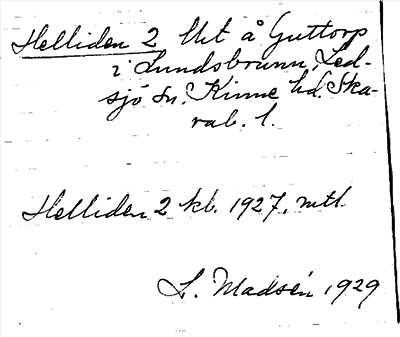 Helliden 2 lht å Guttorp
i Lundsbrunn, Led-
sjö sn. Kinne hd. Ska-
rab. l.
Helliden 2 kb. 1927, mtl.
L. Madsén 1929